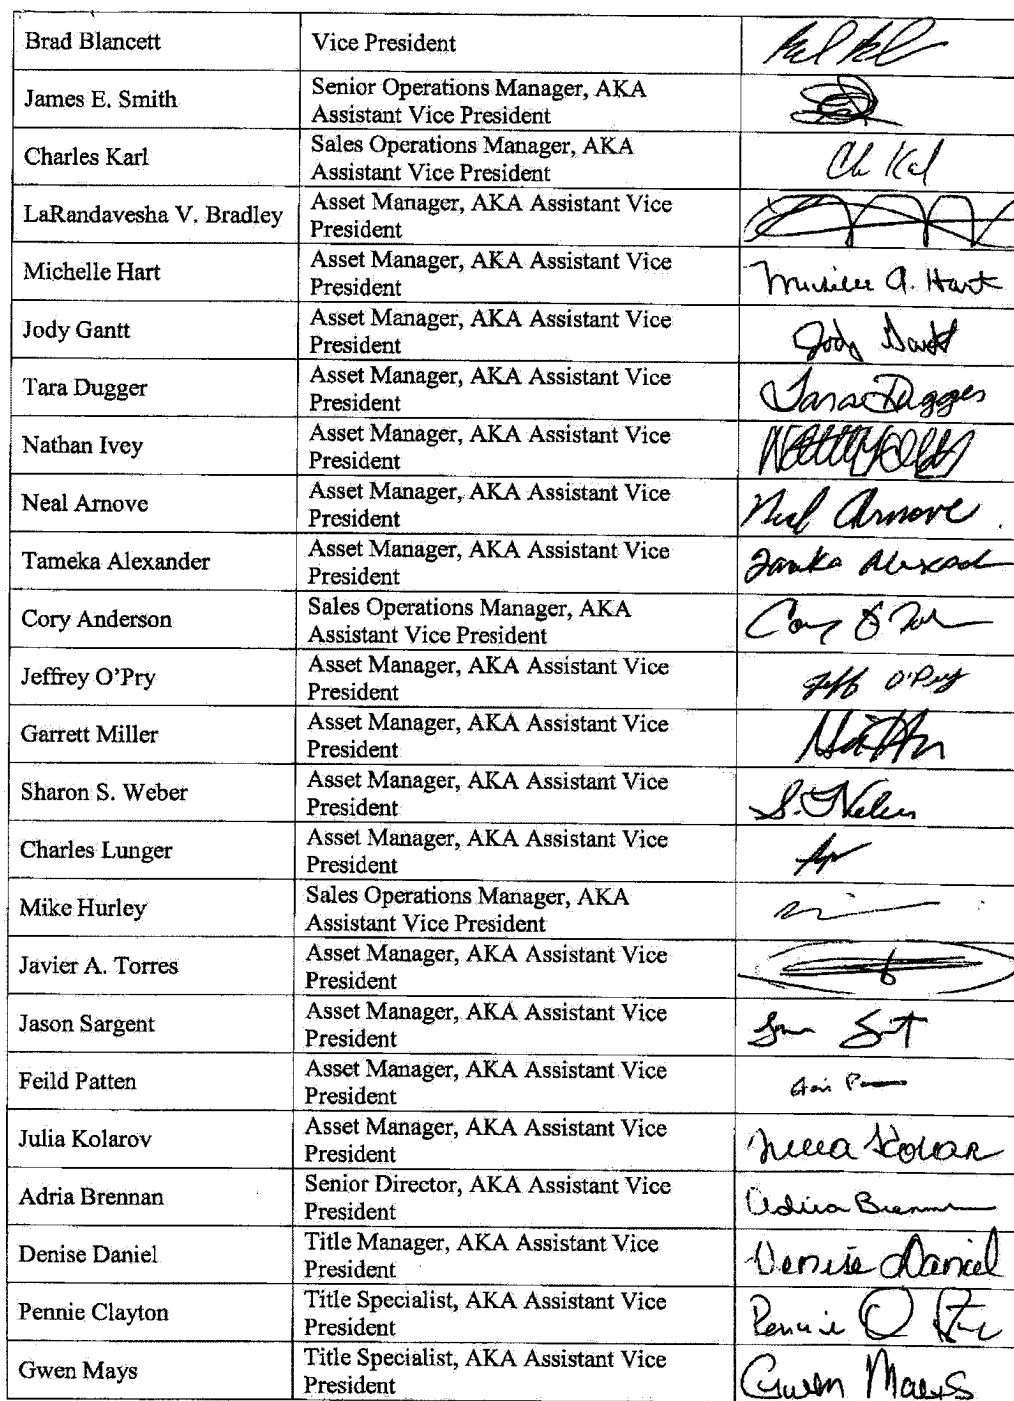 Brad Blancett Vice President
James E. Smith Senior Operations Manager, AKA
Assistant Vice President
Charles Karl Sales Operations Manager, AKA
Assistant Vice President
LaRandavesha V. Bradley Asset Manager, AKA Assistant Vice
President
Michelle Hart Asset Manager, AKA Assistant Vice
President A. Hart
Jody Gantt Asset Manager, AKA Assistant Vice
President Jody Gantt
Tara Dugger Asset Manager, AKA Assistant Vice
President Tara Dugger
Nathan Ivey Asset Manager, AKA Assistant Vice
President
Neal Arnove Asset Manager, AKA Assistant Vice
President Neal Arnove
Tameka Alexander Asset Manager, AKA Assistant Vice
President
Cory Anderson Sales Operations Manager, AKA
Assistant Vice President
Jeffrey O'Pry Asset Manager, AKA Assistant Vice
President Jeff O'Pry
Garrett Miller Asset Manager, AKA Assistant Vice
President
Sharon S. Weber Asset Manager, AKA Assistant Vice
President
Charles Lunger Asset Manager, AKA Assistant Vice
President
Mike Hurley Sales Operations Manager, AKA
Assistant Vice President
Javier A. Torres Asset Manager, AKA Assistant Vice
President
Jason Sargent Asset Manager, AKA Assistant Vice
President
Feild Patten Asset Manager, AKA Assistant Vice
President
Julia Kolarov Asset Manager, AKA Assistant Vice
President
Adria Brennan Senior Director, AKA Assistant Vice
President Adria Brennan
Denise Daniel Title Manager, AKA Assistant Vice
President Denise Daniel
Pennie Clayton Title Specialist, AKA Assistant Vice
President Pennie
Gwen Mays Title Specialist, AKA Assistant Vice
President Gwen Mays